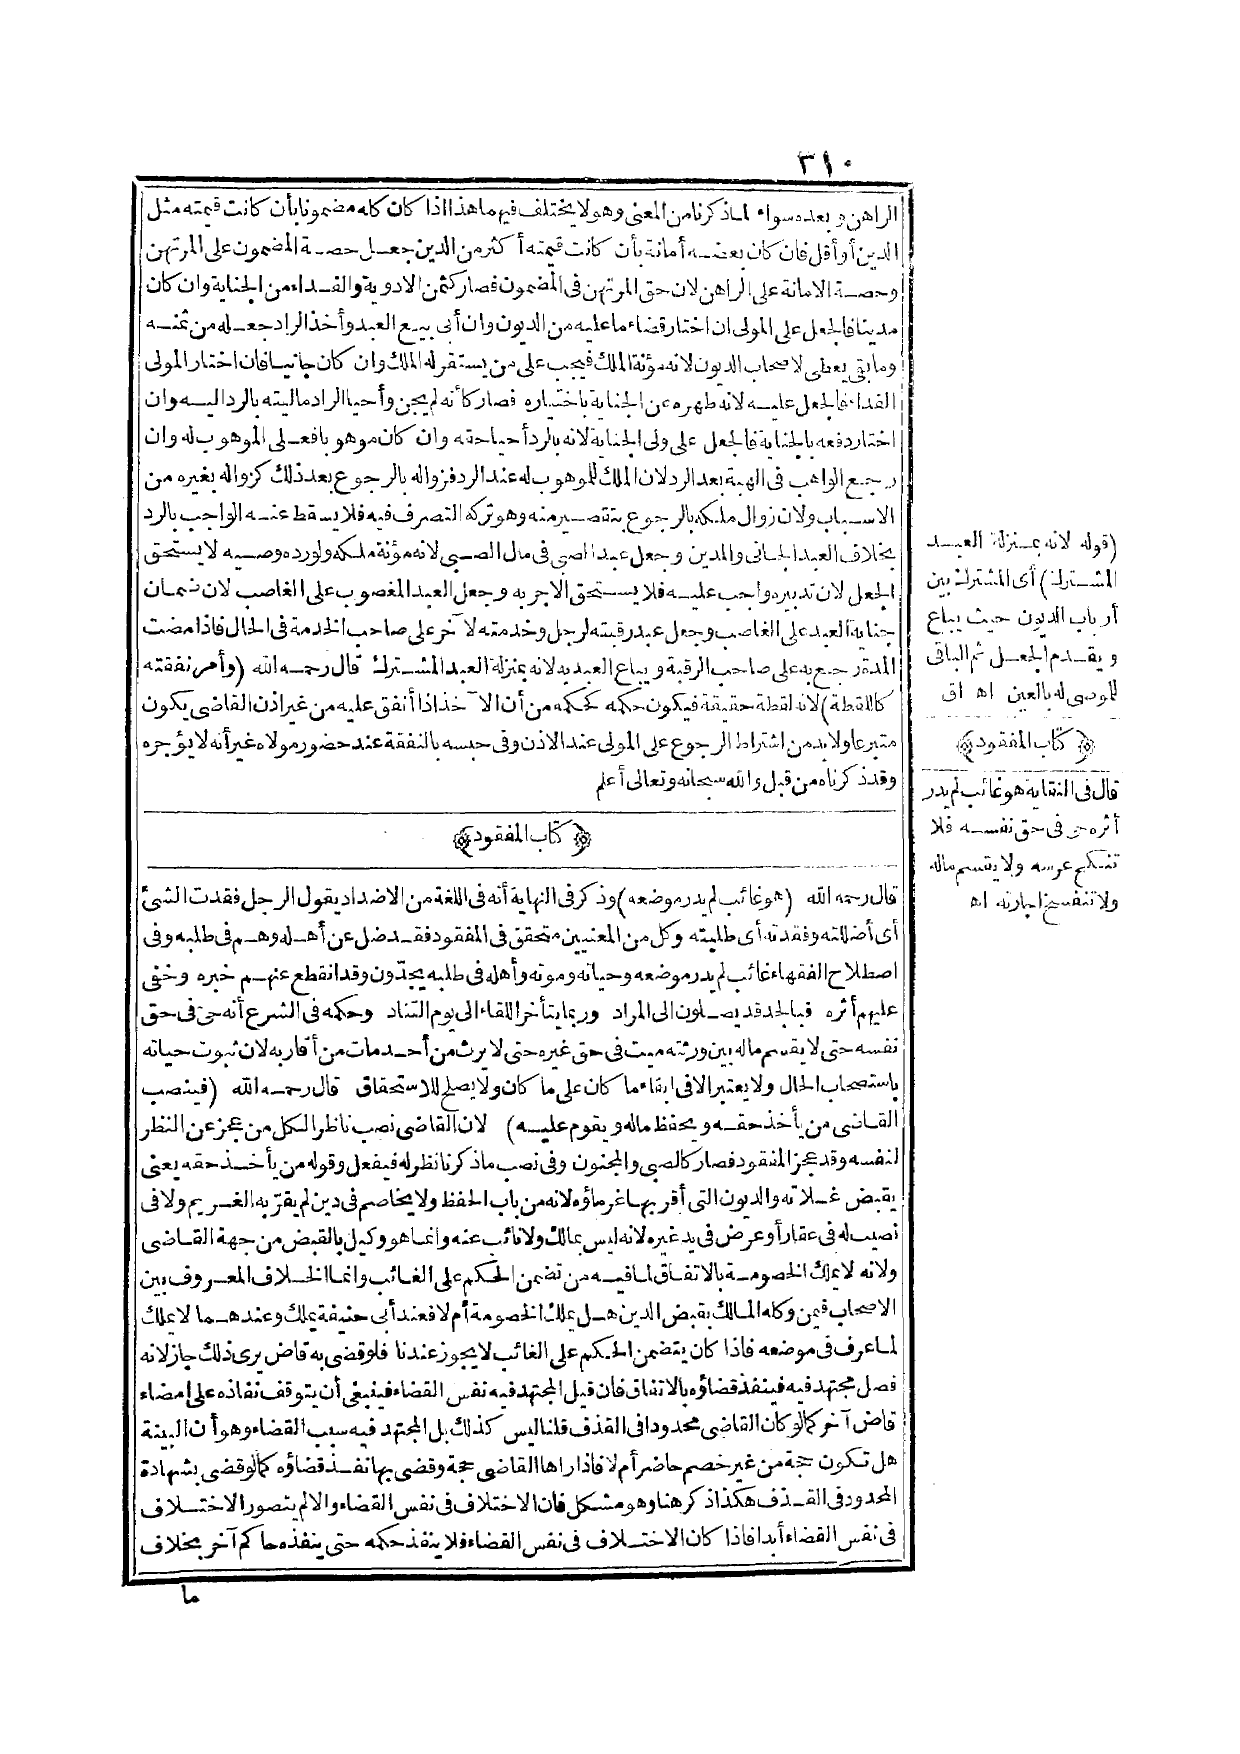 ٣١٠
الراهن وبعده سواء لما ذكرنا من المعنى وهو لا يختلف فيهما هذا اذا كان كله مضمونا بأن كانت قيمته مثل
الدين أو أقل فان كان بعضه أمانة بأن كانت قيمته أكثر من الدين جعل حصة المضمون على المرتهن
وحصة الامانة على الراهن لان حق المرتهن فى المضمون فصار كثمن الادوية والفداء من الجناية وان كان
مدينا فالجعل على المولى ان اختار قضاء ما عليه من الديون وان أبى بيع العبد وأخذ الراد جعله من ثمنه
وما بقى يعطى لاصحاب الديون لانه مؤنة الملك فيجب على من يستقر له الملك وان كان جانيا فان اختار المولى
الفداء فالجعل عليه لانه طهره عن الجناية باختياره فصار كأنه لم يجن وأحيا الراد ماليته بالرد اليه وان
اختار دفعه بالجناية فالجعل على ولى الجناية لانه بالرد أحيا حقه وان كان موهوبا فعلى الموهوب له وان
رجع الواهب فى الهبة بعد الرد لان الملك للموهوب له عند الرد فزواله بالرجوع بعد ذلك كزواله بغيره من
الاسباب ولان زوال ملكه بالرجوع بتقصير منه وهو تركه التصرف فيه فلا يسقط عنه الواجب بالرد
بخلاف العبد الجانى والمدين وجعل عبد الصبى فى مال الصبى لانه مؤنة ملكه ولو رده وصيه لا يستحق
الجعل لان تدبيره واجب عليه فلا يستحق الاجر به وجعل العبد المغصوب على الغاصب لان ضمان
جناية العبد على الغاصب وجعل عبد رقبته لرجل وخدمته لآخر على صاحب الخدمة فى الحال فاذا مضت
المدة رجع به على صاحب الرقبة ويباع العبد به لانه بمنزلة العبد المشترك قال رحمه الله (وأمر نفقته
كاللقطة) لانه لقطة حقيقة فيكون حكمه كحكمه من أن الآخذ اذا أنفق عليه من غير اذن القاضى يكون
متبرعا ولا بد من اشتراط الرجوع على المولى عند الاذن وفى حبسه بالنفقة عند حضور مولاه غير أنه لا يؤجره
وقد ذكرناه من قبل والله سبحانه وتعالى أعلم
﴿كتاب المفقود﴾
قال رحمه الله (هو غائب لم يدر موضعه) وذكر فى النهاية أنه فى اللغة من الاضداد يقول الرجل فقدت الشئ
أى أضللته وفقدته أى طلبته وكل من المعنيين متحقق فى المفقود فقد ضل عن أهله وهم فى طلبه وفى
اصطلاح الفقهاء غائب لم يدر موضعه وحياته وموته وأهله فى طلبه يجدّون وقد انقطع عنهم خبره وخفى
عليهم أثره فبالجد قد يصلون الى المراد وربما يتأخر اللقاء الى يوم التناد وحكمه فى الشرع أنه حىّ فى حق
نفسه حتى لا يقسم ماله بين ورثته ميت فى حق غيره حتى لا يرث من أحد مات من أقاربه لان ثبوت حياته
باستصحاب الحال ولا يعتبر الا فى ابقاء ما كان على ما كان ولا يصلح للاستحقاق قال رحمه الله (فينصب
القاضى من يأخذ حقه ويحفظ ماله ويقوم عليه) لان القاضى نصب ناظرا لكل من عجز عن النظر
لنفسه وقد عجز المفقود فصار كالصبى والمجنون وفى نصب ما ذكرنا نظر له فيفعل وقوله من يأخذ حقه يعنى
يقبض غلاته والديون التى أقر بها غرماؤه لانه من باب الحفظ ولا يخاصم فى دين لم يقرّ به الغريم ولا فى
نصيب له فى عقار أو عرض فى يد غيره لانه ليس بمالك ولا نائب عنه وانما هو وكيل بالقبض من جهة القاضى
ولانه لا يملك الخصومة بالاتفاق لما فيه من تضمن الحكم على الغائب وانما الخلاف المعروف بين
الاصحاب فيمن وكله المالك بقبض الدين هل يملك الخصومة أم لا فعند أبى حنيفة يملك وعندهما لا يملك
لما عرف فى موضعه فاذا كان يتضمن الحكم على الغائب لا يجوز عندنا فلو قضى به قاض يرى ذلك جاز لانه
فصل مجتهد فيه فينفذ قضاؤه بالاتفاق فان قيل المجتهد فيه نفس القضاء فينبغى أن يتوقف نفاذه على امضاء
قاض آخر كما لو كان القاضى محدودا فى القذف قلنا ليس كذلك بل المجتهد فيه سبب القضاء وهو أن البينة
هل تكون حجة من غير خصم حاضر أم لا فاذا رآها القاضى حجة وقضى بها نفذ قضاؤه كما لو قضى بشهادة
المحدود فى القذف هكذا ذكر هنا وهو مشكل فان الاختلاف فى نفس القضاء والا لم يتصور الاختلاف
فى نفس القضاء أبدا فاذا كان الاختلاف فى نفس القضاء فلا ينفذ حكمه حتى ينفذه حاكم آخر بخلاف
ما
(قوله لانه بمنزلة العبد
المشترك) أى المشترك بين
أرباب الديون حيث يباع
ويقدم الجعل ثم الباقى
للموصى له بالعين اه اق
﴿كتاب المفقود﴾
قال فى النقاية هو غائب لم يدر
أثره حى فى حق نفسه فلا
تنكح عرسه ولا يقسم ماله
ولا تنفسخ اجارته اه